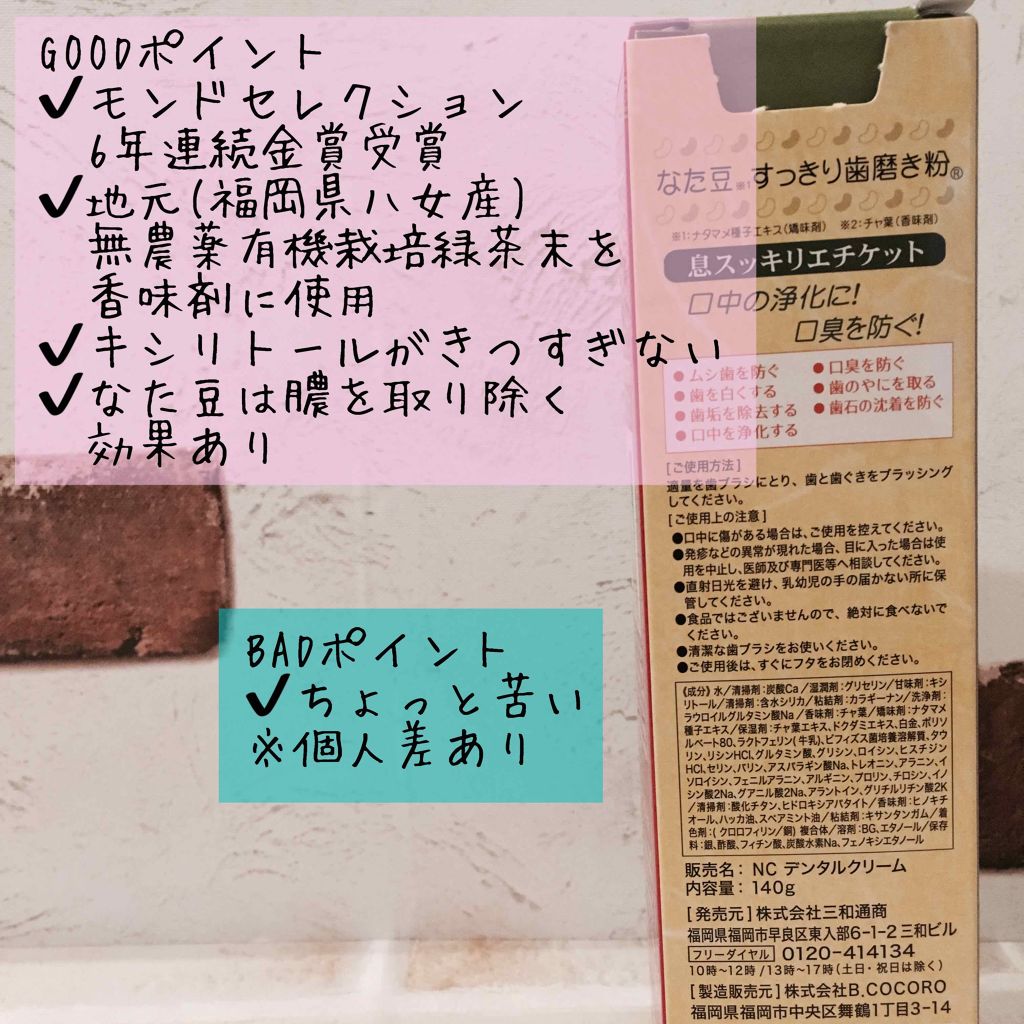 GOODポイント
✔モンドセレクション
6年連続金賞受賞
✔地元(福岡県八女産)
無農薬有機栽培緑茶末を
香味剤に使用
✔キシリトールがきつすぎない
✔なた豆は膿を取り除く
効果あり
BADポイント
✔ちょっと苦い
※個人差あり
なた豆※1すっきり歯磨き粉®
※1:ナタマメ種子エキス(矯味剤) ※2:チャ葉(香味剤)
息スッキリエチケット
口中の浄化に!
口臭を防ぐ!
●ムシ歯を防ぐ ●口臭を防ぐ
●歯を白くする ●歯のやにを取る
●歯垢を除去する ●歯石の沈着を防ぐ
●口中を浄化する
[ご使用方法]
適量を歯ブラシにとり、歯と歯ぐきをブラッシング
してください。
[ご使用上の注意]
●口中に傷がある場合は、ご使用を控えてください。
●発疹などの異常が現れた場合、目に入った場合は使
用を中止し、医師及び専門医等へ相談してください。
●直射日光を避け、乳幼児の手の届かない所に保
管してください。
●食品ではございませんので、絶対に食べないで
ください。
●清潔な歯ブラシをお使いください。
●ご使用後は、すぐにフタをお閉めください。
《成分》水/清掃剤:炭酸Ca/湿潤剤:グリセリン/甘味剤:キシ
リトール/清掃剤:含水シリカ/粘結剤:カラギーナン/洗浄剤:
ラウロイルグルタミン酸Na/香味剤:チャ葉/矯味剤:ナタマメ
種子エキス/保湿剤:チャ葉エキス、ドクダミエキス、白金、ポリソ
ルベート80、ラクトフェリン(牛乳)、ビフィズス菌培養溶解質、タウ
リン、リシンHCl、グルタミン酸、グリシン、ロイシン、ヒスチジン
HCl、セリン、バリン、アスパラギン酸Na、トレオニン、アラニン、イ
ソロイシン、フェニルアラニン、アルギニン、プロリン、チロシン、イノ
シン酸2Na、グアニル酸2Na、アラントイン、グリチルリチン酸2K
/清掃剤:酸化チタン、ヒドロキシアパタイト/香味剤:ヒノキチ
オール、ハッカ油、スペアミント油/粘結剤:キサンタンガム/着
色剤:(クロロフィリン/銅)複合体/溶剤:BG、エタノール/保存
料:銀、酢酸、フィチン酸、炭酸水素Na、フェノキシエタノール
販売名:NC デンタルクリーム
内容量:140g
[発売元]株式会社三和通商
福岡県福岡市早良区東入部6-1-2 三和ビル
フリーダイヤル 0120-414134
10時~12時/13時~17時(土日・祝日は除く)
[製造販売元]株式会社B.COCORO
福岡県福岡市中央区舞鶴1丁目3-14